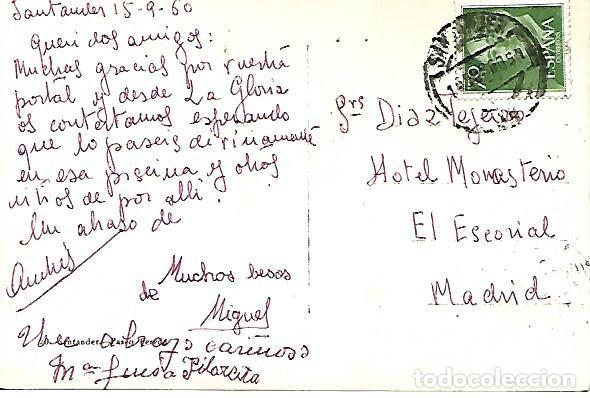 Santander 15-9-60
Queridos amigos:
Muchas gracias por vuestra
postal y desde La Gloria
os contestamos esperando
que lo paseis divinamente
en esa piscina y otros
sitios de por alli.
Un abrazo de
Andrés
Muchos besos
de
Miguel
Un abrazo cariñoso
Mª Luisa Pilarcita
Santander. Paseo Pereda
ESPAÑA
70
Srs Diaz Tejeiro
Hotel Monasterio
El Escorial
Madrid
todocoleccion